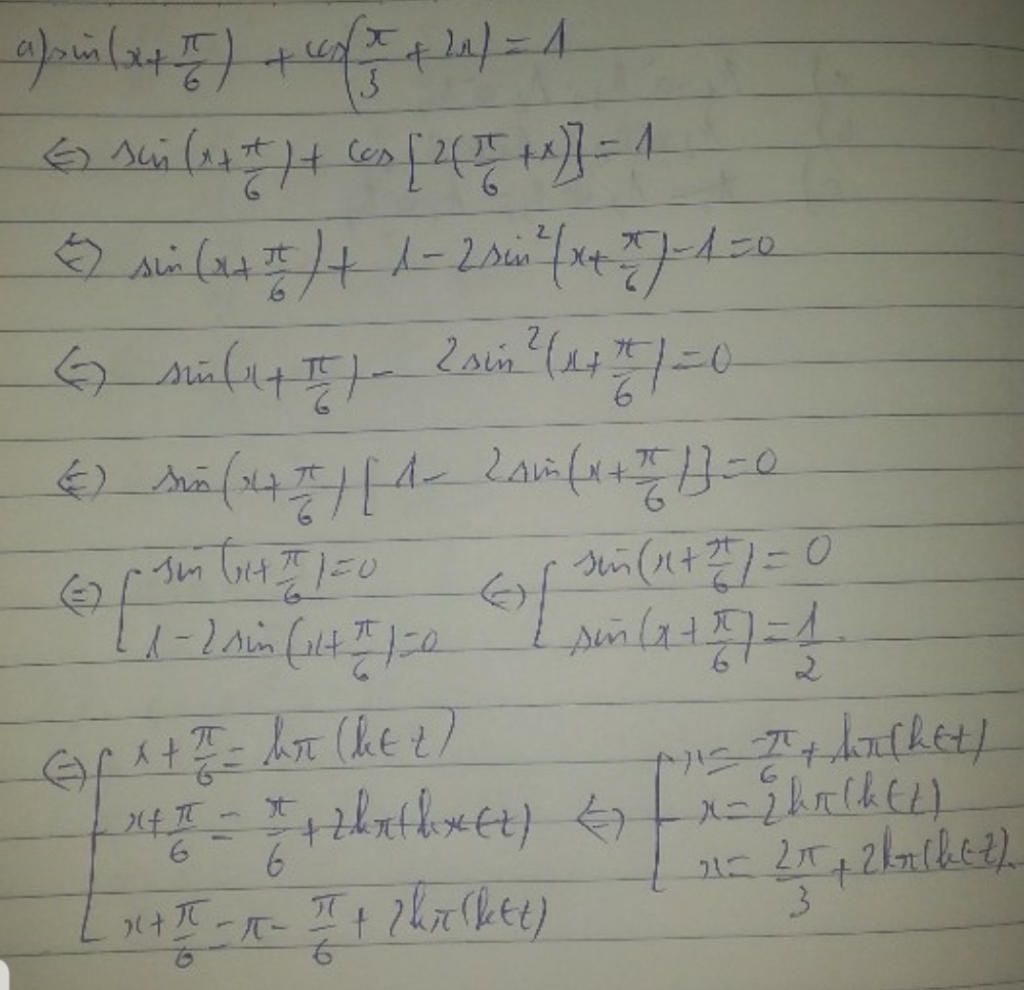 a) sin(x+π/6) + cos(π/3 + 2x) = 1
⇔ sin(x+π/6) + cos[2(π/6 +x)] = 1
⇔ sin(x+π/6) + 1 - 2sin²(x+π/6) - 1 = 0
⇔ sin(x+π/6) - 2sin²(x+π/6) = 0
⇔ sin(x+π/6)[1 - 2sin(x+π/6)] = 0
⇔ [ sin(x+π/6) = 0 ⇔ [ sin(x+π/6) = 0
1 - 2sin(x+π/6) = 0 sin(x+π/6) = 1/2.
⇔ [ x+π/6 = kπ (k∈Z) [ x = -π/6 + kπ (k∈Z)
x+π/6 = π/6 + 2kπ (k∈Z) ⇔ x = 2kπ (k∈Z)
x+π/6 = π - π/6 + 2kπ (k∈Z) x = 2π/3 + 2kπ (k∈Z).